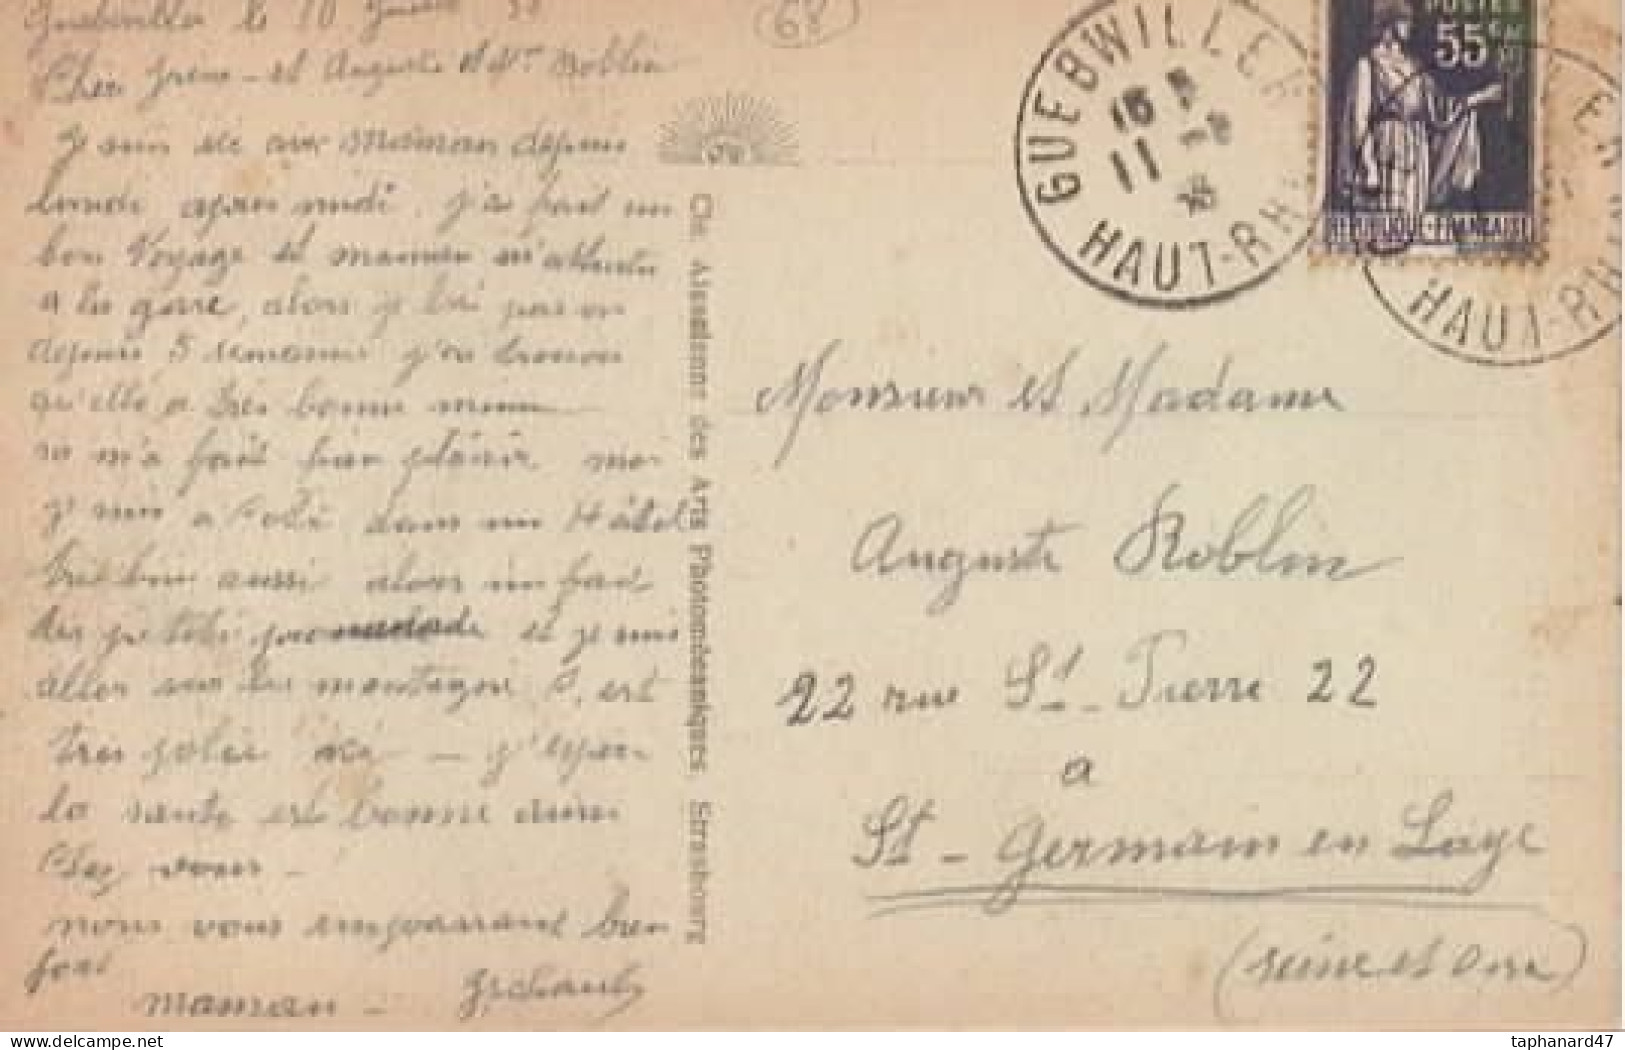 Guebwiller le 10
68
et Auguste et Mr Roblin
maman depuis
lundi après midi, j'ai fait un
bon Voyage et maman m'attendu
a la gare, alors
depuis 5 semaines j'ai trouvé
qu'elle a très bonne mine
sa m'a fait bien plaisir. moi
dans un Hôtel
très bien aussi alors on fait
des petite promenade et je suis
aller sur les montagne s'est
très jolie ici - j'espère
la santé est bonne aussi
Chez vous -
nous vous embrassant bien
fort
maman -
Cie. Alsacienne des Arts Photomécaniques Strasbourg
GUEBWILLER
11
HAUT-RHIN
POSTES
55c
REPUBLIQUE-FRANÇAISE
HAUT-RH
Monsieur et Madame
Auguste Roblin
22 rue St-Pierre 22
a
St-Germain en Laye
(Seine et Oise)
taphanard47